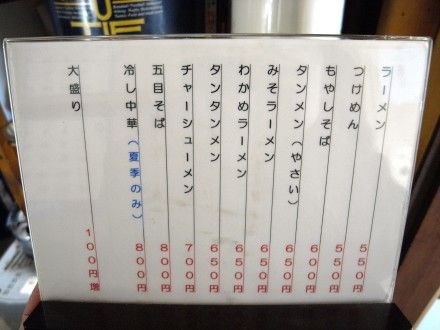 ラーメン 550円
つけめん 550円
もやしそば 600円
タンメン(やさい) 650円
みそラーメン 650円
わかめラーメン 650円
タンタンメン 650円
チャーシューメン 700円
五目そば 800円
冷し中華(夏季のみ) 800円
大盛り 100円増